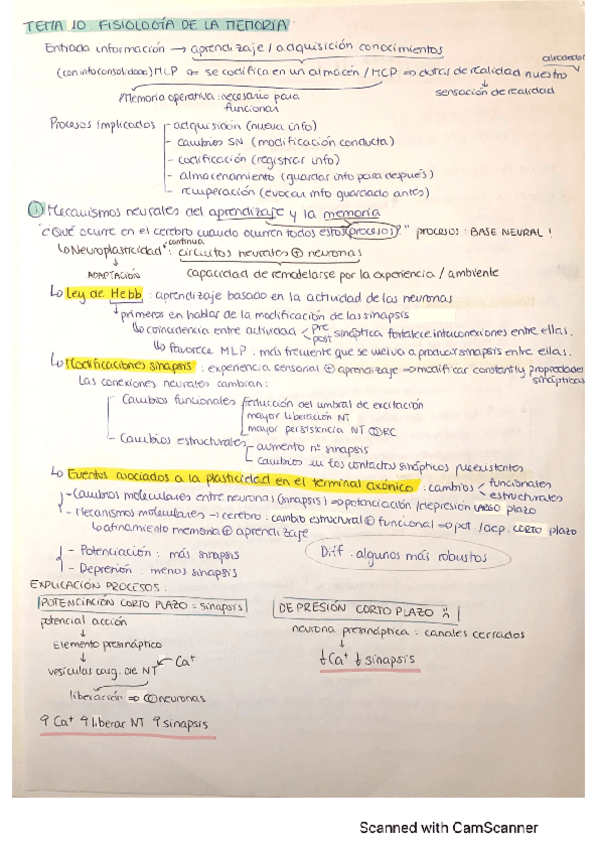 TEMA 10. FISIOLOGÍA DE LA MEMORIA
Entrada información → aprendizaje / adquisición conocimientos
(con info consolidada) MLP ⇐ se codifica en un almacén / MCP ⇒ dotar de realidad nuestro alrededor
Memoria operativa : necesario para funcionar
↓ sensación de realidad
Procesos implicados
- adquisición (nueva info)
- cambios SN (modificación conducta)
- codificación (registrar info)
- almacenamiento (guardar info para después)
- recuperación (evocar info guardado antes)
① Mecanismos neurales del aprendizaje y la memoria
¿Qué ocurre en el cerebro cuando ocurren todos estos procesos?" PROCESOS : BASE NEURAL!
↳ Neuroplasticidad continua : circuitos neurales ⊕ neuronas
↓
ADAPTACIÓN
capacidad de remodelarse por la experiencia / ambiente
↳ Ley de Hebb : aprendizaje basado en la actividad de las neuronas
↳ primeros en hablar de la modificación de las sinapsis
↳ coincidencia entre actividad < pre post sináptica fortalece entre ellas.
↳ favorece MLP : más frecuente que se vuelva a producir sinapsis entre ellas.
↳ Modificaciones sinapsis : experiencia sensorial ⊕ aprendizaje ⇒ modificar constant y propiedades sinápticas
Las conexiones neurales cambian :
Cambios funcionales
reducción del umbral de excitación
mayor liberación NT
mayor persistencia NT
- Cambios estructurales
- aumento nº sinapsis
- cambios en los contactos sinápticos preexistentes
↳ Eventos asociados a la plasticidad en el terminal axónico : cambios < funcionales estructurales
- Cambios moleculares entre neuronas (sinapsis) ⇒ potenciación / depresión LARGO plazo
- Mecanismos moleculares → cerebro : cambio estructural ⊕ funcional ⇒ pot. / dep. CORTO plazo
↳ afinamiento memoria ⊕ aprendizaje
- Potenciación : más sinapsis
- Depresión : menos sinapsis
Diff : algunos más robustos
EXPLICACIÓN PROCESOS :
POTENCIACIÓN CORTO PLAZO : sinapsis
potencial acción
↓
Elemento presináptico
↓
vesículas carg. de NT ← Ca⁺
liberación ⇒ neuronas
↑ Ca⁺ ↑ liberar NT ↑ sinapsis
DEPRESIÓN CORTO PLAZO
neurona presináptica : canales cerrados
↓
↓ Ca⁺ ↓ sinapsis
Scanned with CamScanner